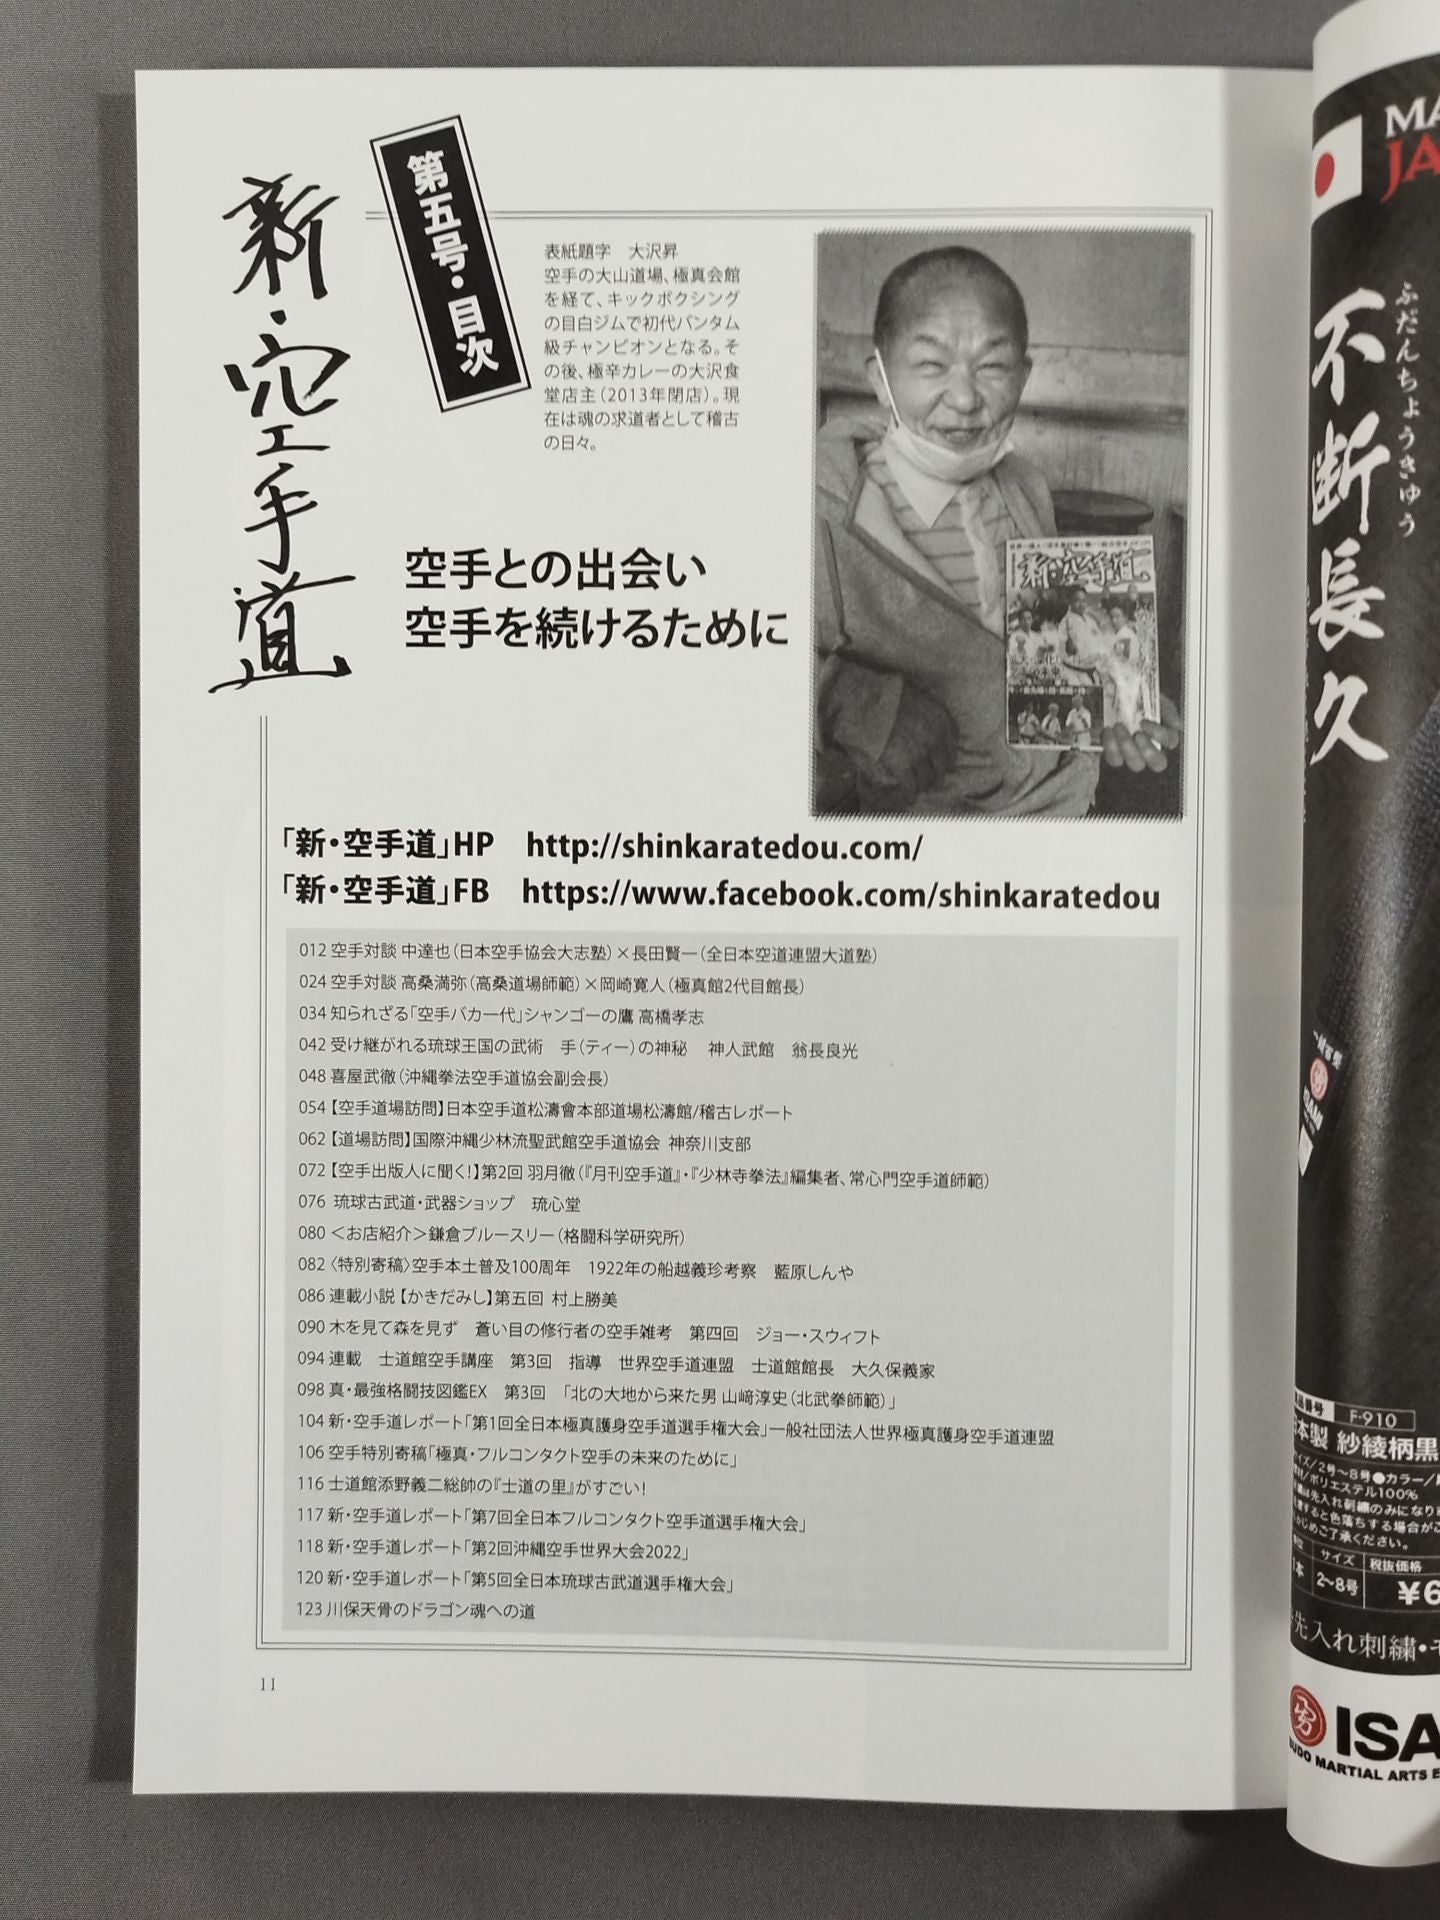 新・空手道
第五号・目次
表紙題字　大沢昇
空手の大山道場、極真会館
を経て、キックボクシング
の目白ジムで初代バンタム
級チャンピオンとなる。そ
の後、極辛カレーの大沢食
堂店主（2013年閉店）。現
在は魂の求道者として稽古
の日々。
新・空手道
空手との出会い
空手を続けるために
「新・空手道」HP　http://shinkaratedou.com/
「新・空手道」FB　https://www.facebook.com/shinkaratedou
012 空手対談 中達也（日本空手協会大志塾）×長田賢一（全日本空道連盟大道塾）
024 空手対談 高桑満弥（高桑道場師範）×岡崎寛人（極真館2代目館長）
034 知られざる「空手バカ一代」シャンゴーの鷹 高橋孝志
042 受け継がれる琉球王国の武術　手（ティー）の神秘　神人武館　翁長良光
048 喜屋武徹（沖縄拳法空手道協会副会長）
054【空手道場訪問】日本空手道松濤會本部道場松濤館/稽古レポート
062【道場訪問】国際沖縄少林流聖武館空手道協会 神奈川支部
072【空手出版人に聞く！】第2回 羽月徹（『月刊空手道』・『少林寺拳法』編集者、常心門空手道師範）
076 琉球古武道・武器ショップ　琉心堂
080 ＜お店紹介＞鎌倉ブルースリー（格闘科学研究所）
082〈特別寄稿〉空手本土普及100周年　1922年の船越義珍考察　藍原しんや
086 連載小説【かきだみし】第五回 村上勝美
090 木を見て森を見ず　蒼い目の修行者の空手雑考　第四回　ジョー・スウィフト
094 連載　士道館空手講座　第3回　指導　世界空手道連盟　士道館館長　大久保義家
098 真・最強格闘技図鑑EX　第3回　「北の大地から来た男 山﨑淳史（北武拳師範）」
104 新・空手道レポート「第1回全日本極真護身空手道選手権大会」一般社団法人世界極真護身空手道連盟
106 空手特別寄稿「極真・フルコンタクト空手の未来のために」
116 士道館添野義二総帥の『士道の里』がすごい！
117 新・空手道レポート「第7回全日本フルコンタクト空手道選手権大会」
118 新・空手道レポート「第2回沖縄空手世界大会2022」
120 新・空手道レポート「第5回全日本琉球古武道選手権大会」
123 川保天骨のドラゴン魂への道
11
MA
JA
ふだんちょうきゅう
不断長久
ISAMI
番号 F-910
本製 紗綾柄黒
イズ/2号～8号●カラー/
材/ポリエステル100%
は先入れ刺繍のみになりま
すると色落ちする場合がご
かじめご了承ください。
サイズ 税抜価格
本 2～8号 ¥6
先入れ刺繍・
ISA
BUDO MARTIAL ARTS E